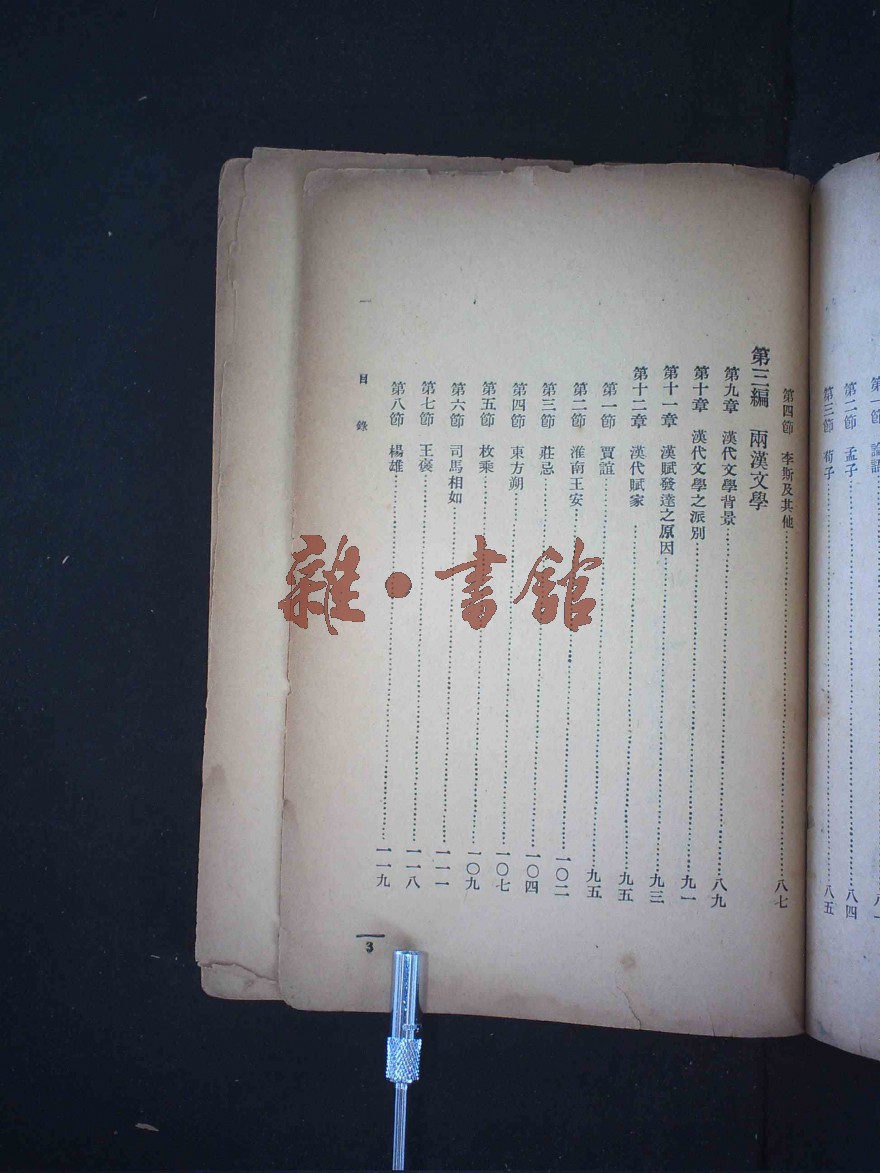 第一節 論語
第二節 孟子……八四
第三節 荀子……八五
第四節 李斯及其他……八七
第三編 兩漢文學
第九章 漢代文學背景……八九
第十章 漢代文學之派別……九一
第十一章 漢賦發達之原因……九三
第十二章 漢代賦家……九五
第一節 賈誼……九五
第二節 淮南王安……一〇二
第三節 莊忌……一〇四
第四節 東方朔……一〇七
第五節 枚乘……一〇九
第六節 司馬相如……一一一
第七節 王褒……一一八
第八節 楊雄……一一九
一 目錄
3
雜·書館